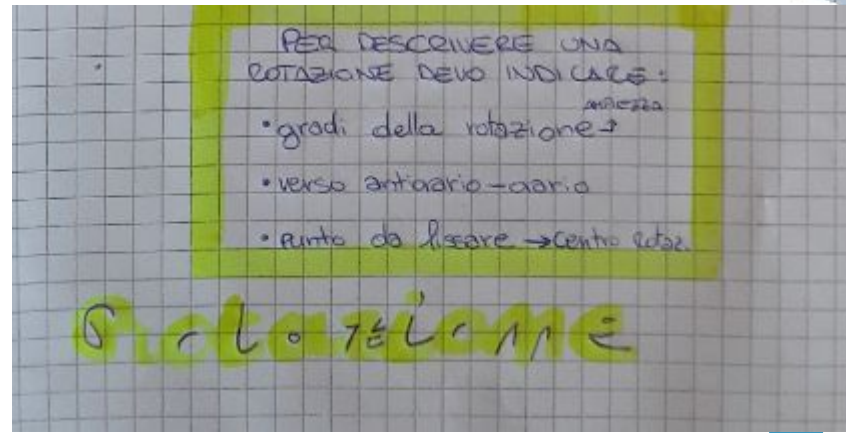 PER DESCRIVERE UNA
ROTAZIONE DEVO INDICARE:
ampiezza
• gradi della rotazione →
• verso antiorario - orario
• punto da fissare → centro rotaz.
Rotazione